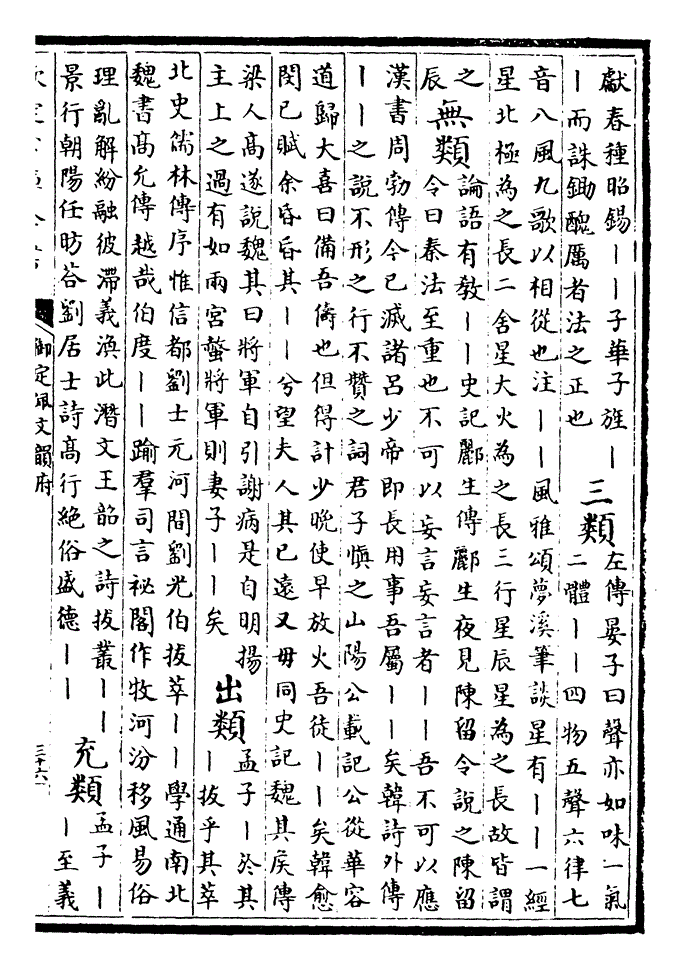 獻春種昭錫丨丨子華子旌丨
丨而誅鋤醜厲者法之正也
三類
左傳晏子曰聲亦如味一氣
二體丨丨四物五聲六律七
音八風九歌以相從也注丨丨風雅頌夢溪筆談星有丨丨一經
星北極為之長二舍星大火為之長三行星辰星為之長故皆謂
之
辰
無類
論語有敎丨丨史記酈生傳酈生夜見陳留令說之陳留
令曰秦法至重也不可以妄言妄言者丨丨吾不可以應
漢書周勃傳今已滅諸呂少帝即長用事吾屬丨丨矣韓詩外傳
丨丨之說不形之行不贊之詞君子慎之山陽公載記公從華容
道歸大喜曰備吾儔也但得計少晚使早放火吾徒丨丨矣韓愈
閔已賦余昏昏其丨丨兮望夫人其已遠又毋同史記魏其矦傳
梁人高遂說魏其曰將軍自引謝病是自明揚
主上之過有如兩宮螫將軍則妻子丨丨矣
出類
孟子丨於其
丨拔乎其萃
北史儒林傳序惟信都劉士元河間劉光伯拔萃丨丨學通南北
魏書高允傳越哉伯度丨丨踰羣司言祕閣作牧河汾移風易俗
理亂解紛融彼滯義渙此潛文王韶之詩拔叢丨丨
景行朝陽任昉荅劉居士詩高行絶俗盛德丨丨
充類
孟子丨
丨至義
御定佩文韻府
三十六